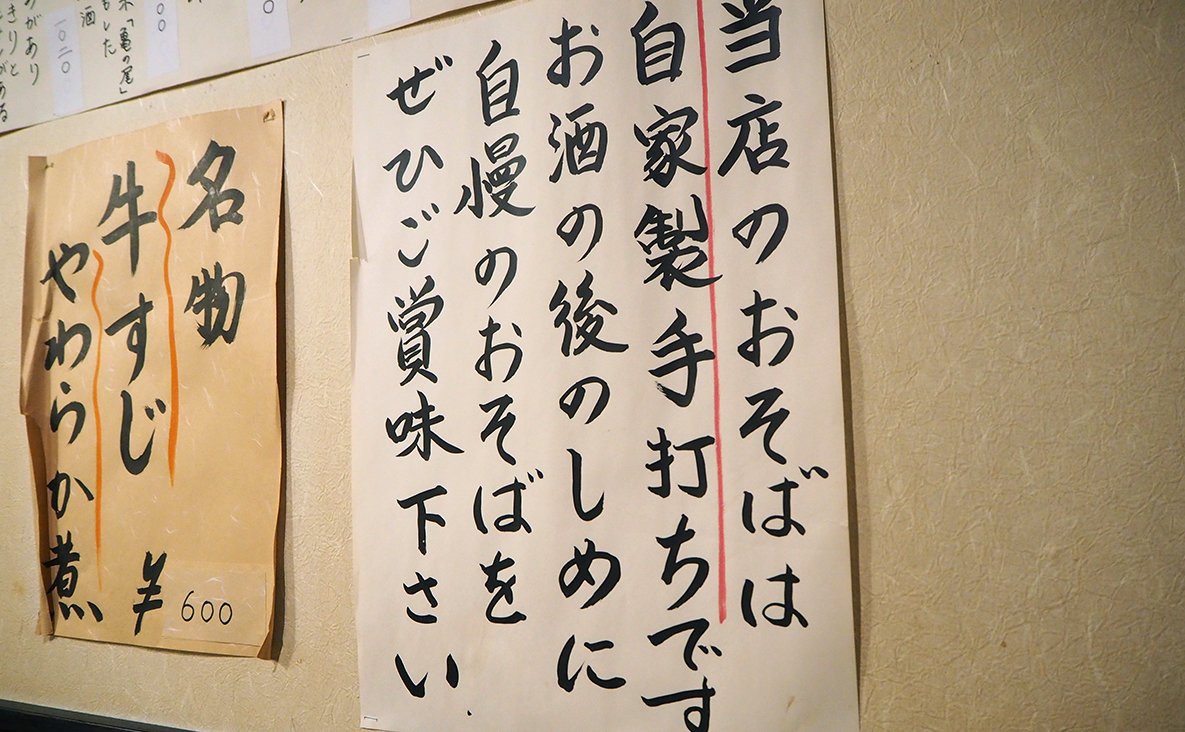 当店のおそばは
自家製手打ちです
お酒の後のしめに
自慢のおそばを
ぜひご賞味下さい
名物
牛すじ
やわらか煮
¥600
「亀の尾」
もした
酒
があり
きりと
がある
一〇二〇